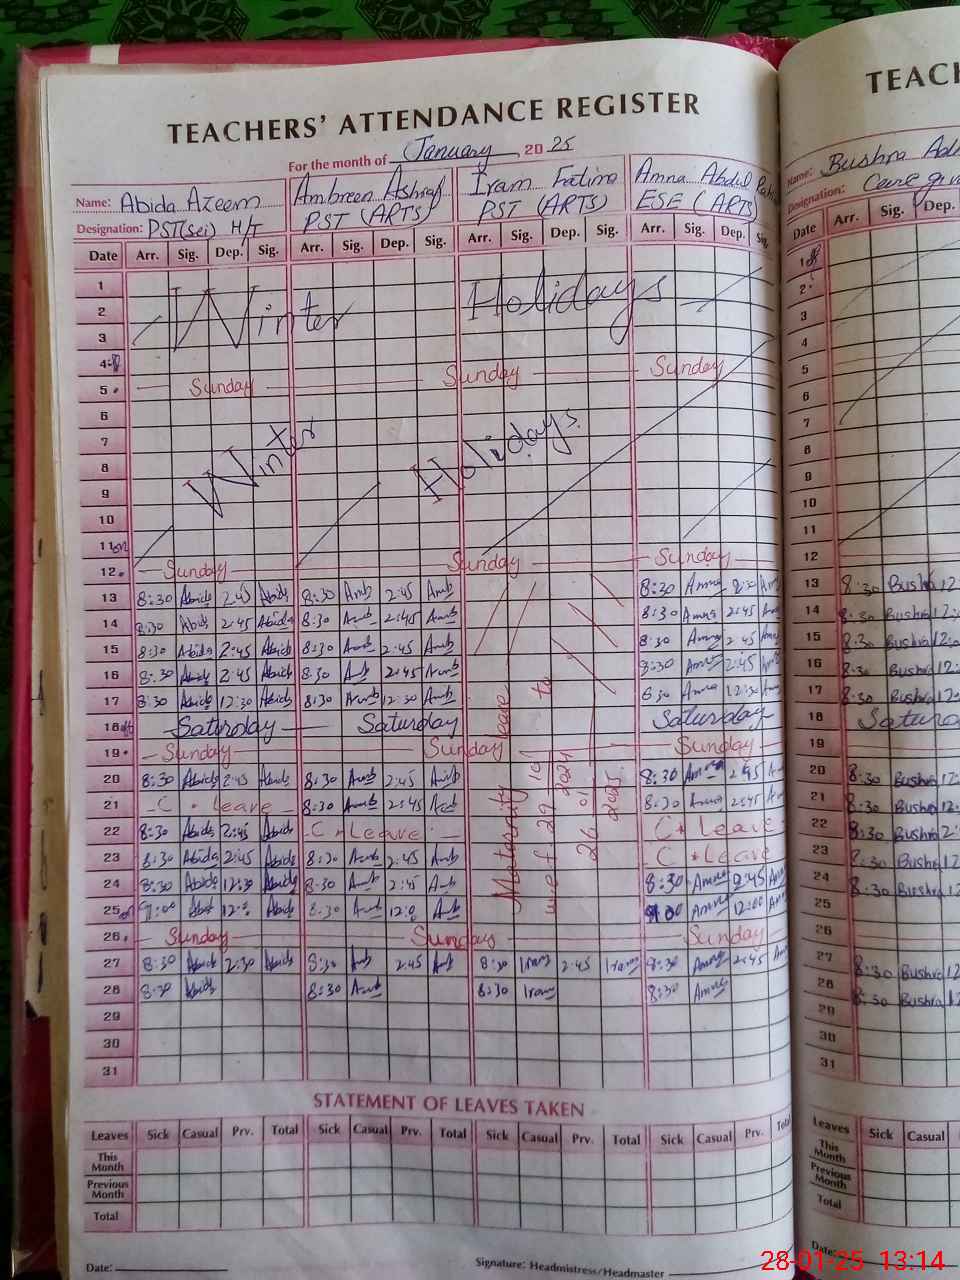 TEACHERS' ATTENDANCE REGISTER
For the month of January, 2025
Name: Abida Azeem Ambreen Ashraf Iram Fatima Amna Abdul
Designation: PST(sci) H/T PST (ARTS) PST (ARTS) ESE (ARTS)
Date Arr. Sig. Dep. Sig. Arr. Sig. Dep. Sig. Arr. Sig. Dep. Sig. Arr. Sig. Dep. Sig.
1
2 Winter Holidays
3
4
5 Sunday Sunday Sunday
6
7
8 Winter Holidays
9
10
11
12 Sunday Sunday Sunday
13 8:30 Abida 2:45 Abida 8:30 Amb 2:45 Amb 8:30 Amna Amna
14 8:30 Abida 2:45 Abida 8:30 Amb 2:45 Amb 8:30 Amna 2:45 Amna
15 8:30 Abida 2:45 Abida 8:30 Amb 2:45 Amb 8:30 Amna 2:45 Amna
16 8:30 Abida 2:45 Abida 8:30 Amb 2:45 Amb 8:30 Amna 2:45 Amna
17 8:30 Abida 12:30 Abida 8:30 Amb 12:30 Amb 8:30 Amna 12:30 Amna
18 Saturday Saturday Saturday
19 Sunday Sunday Sunday
20 8:30 Abida 2:45 Abida 8:30 Amb 2:45 Amb 8:30 Amna 2:45
21 C. leave 8:30 Amb 2:45 Amb 8:30 Amna 2:45
22 8:30 Abida 2:45 Abida C Leave C Leave
23 8:30 Abida 2:45 Abida 8:30 Amb 2:45 Amb C Leave
24 8:30 Abida 12:30 Abida 8:30 Amb 2:45 Amb 8:30 Amna 2:45
25 9:00 8:30 Amb Amb Amna 12:00
26 Sunday Sunday Sunday
27 8:30 Abida 2:30 Abida 8:30 Amb 2:45 Amb 8:30 Iram 2:45 Iram 8:30 Amna 2:45
28 8:30 Abida 8:30 Amb 8:30 Iram 8:30 Amna
29
30
31
Maternity leave
w.e.f 29 10 2024 to
26 01 2025
STATEMENT OF LEAVES TAKEN
Leaves Sick Casual Prv. Total Sick Casual Prv. Total Sick Casual Prv. Total Sick Casual Prv. Total
This Month
Previous Month
Total
Date: Signature: Headmistress/Headmaster
TEACH
Name: Bushra
Designation: Care
Date Arr. Sig. Dep.
1
2
3
4
5
6
7
8
9
10
11
12
13 8:30 Bushra 12
14 8:30 Bushra 12:
15 8:30 Bushra 12:
16 8:30 Bushra 12:
17 8:30 Bushra 12:
18 Satur
19
20 8:30 Bushra 12
21 8:30 Bushra 12
22 8:30 Bushra
23 8:30 Bushra 12
24 8:30 Bushra 12
25
26
27 8:30 Bushra 12
28 8:30 Bushra 12
29
30
31
Leaves Sick Casual
This Month
Previous Month
Total
Date:
28-01-25 13:14